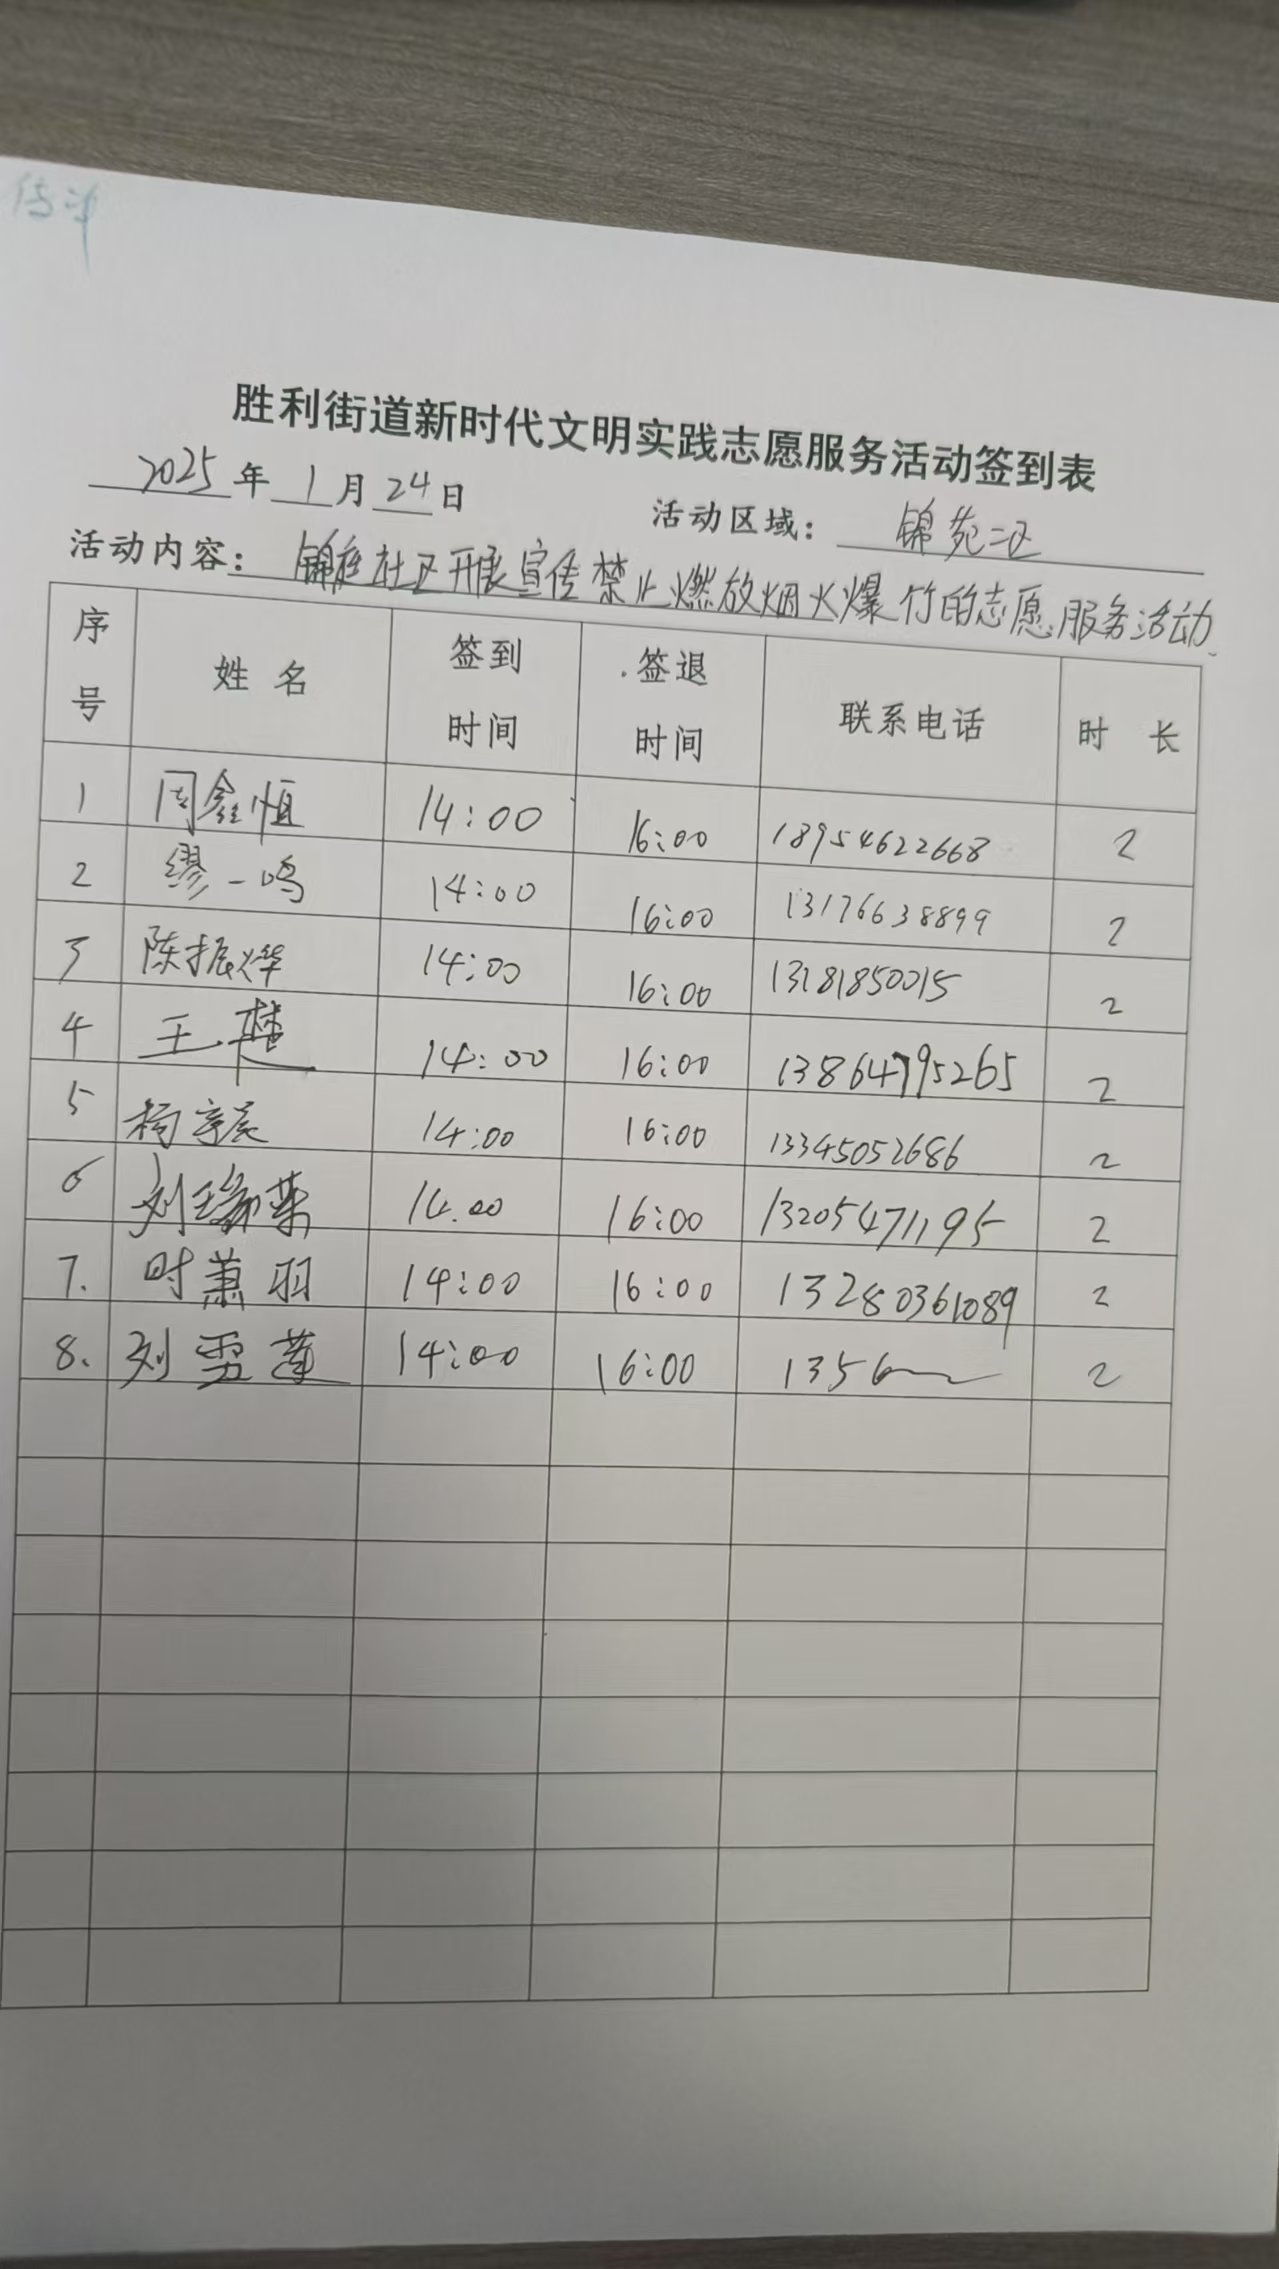 胜利街道新时代文明实践志愿服务活动签到表
2025年1月24日 活动区域：锦苑二区
活动内容：锦苑社区开展宣传禁止燃放烟火爆竹的志愿服务活动.
序号 姓名 签到时间 签退时间 联系电话 时长
1 周鑫恒 14:00 16:00 18954622668 2
2 缪一鸣 14:00 16:00 13176638899 2
3 陈振烨 14:00 16:00 13181850015 2
4 王楚 14:00 16:00 13864795265 2
5 杨宗辰 14:00 16:00 13345052686 2
6 刘缘荣 14.00 16:00 13205471195 2
7. 时萧羽 14:00 16:00 13280361089 2
8. 刘雪莲 14:00 16:00 1356 2